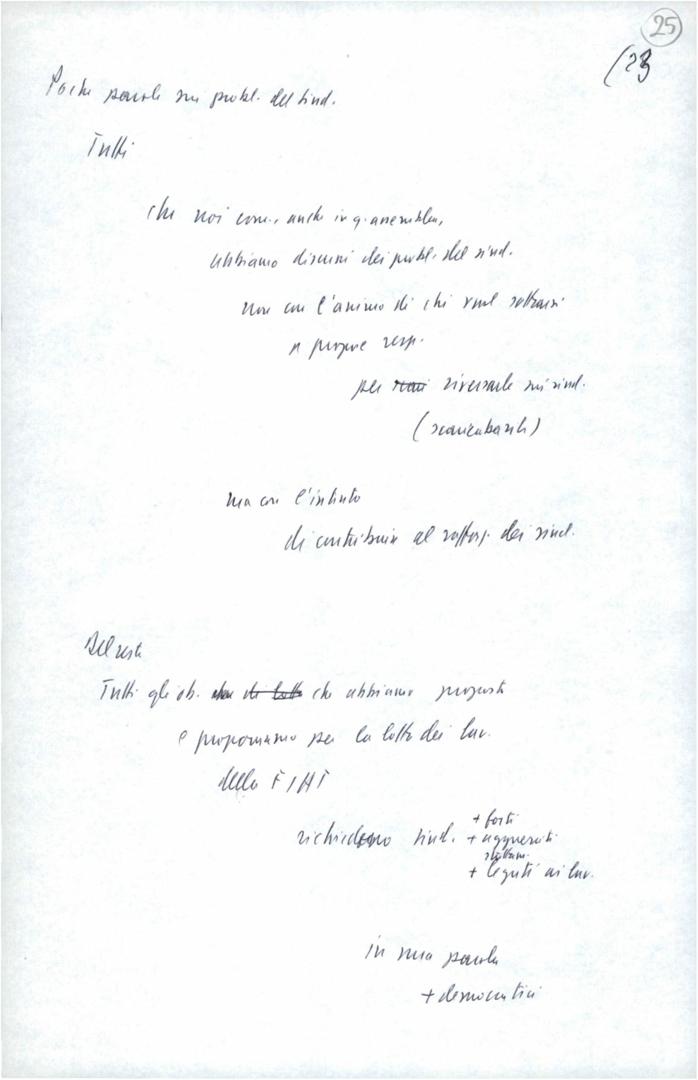 25
(23
Poche parole sui probl. del sind.
Tutti
che noi com., anche in q. assemblea,
abbiamo discusso dei probl. del sind.
non con l'animo di chi vuol sottrarsi
a proprie resp.
per riversarle sui sind.
(scaricabarili)
ma con l'intento
di contribuire al rafforz. dei sind.
Del resto
Tutti gli ob. che di lotta che abbiamo proposti
e proponiamo per la lotta dei lav.
della FIAT
richiedono sind. + forti
+ agguerriti
+ legati ai lav.
in una parola
+ democratici